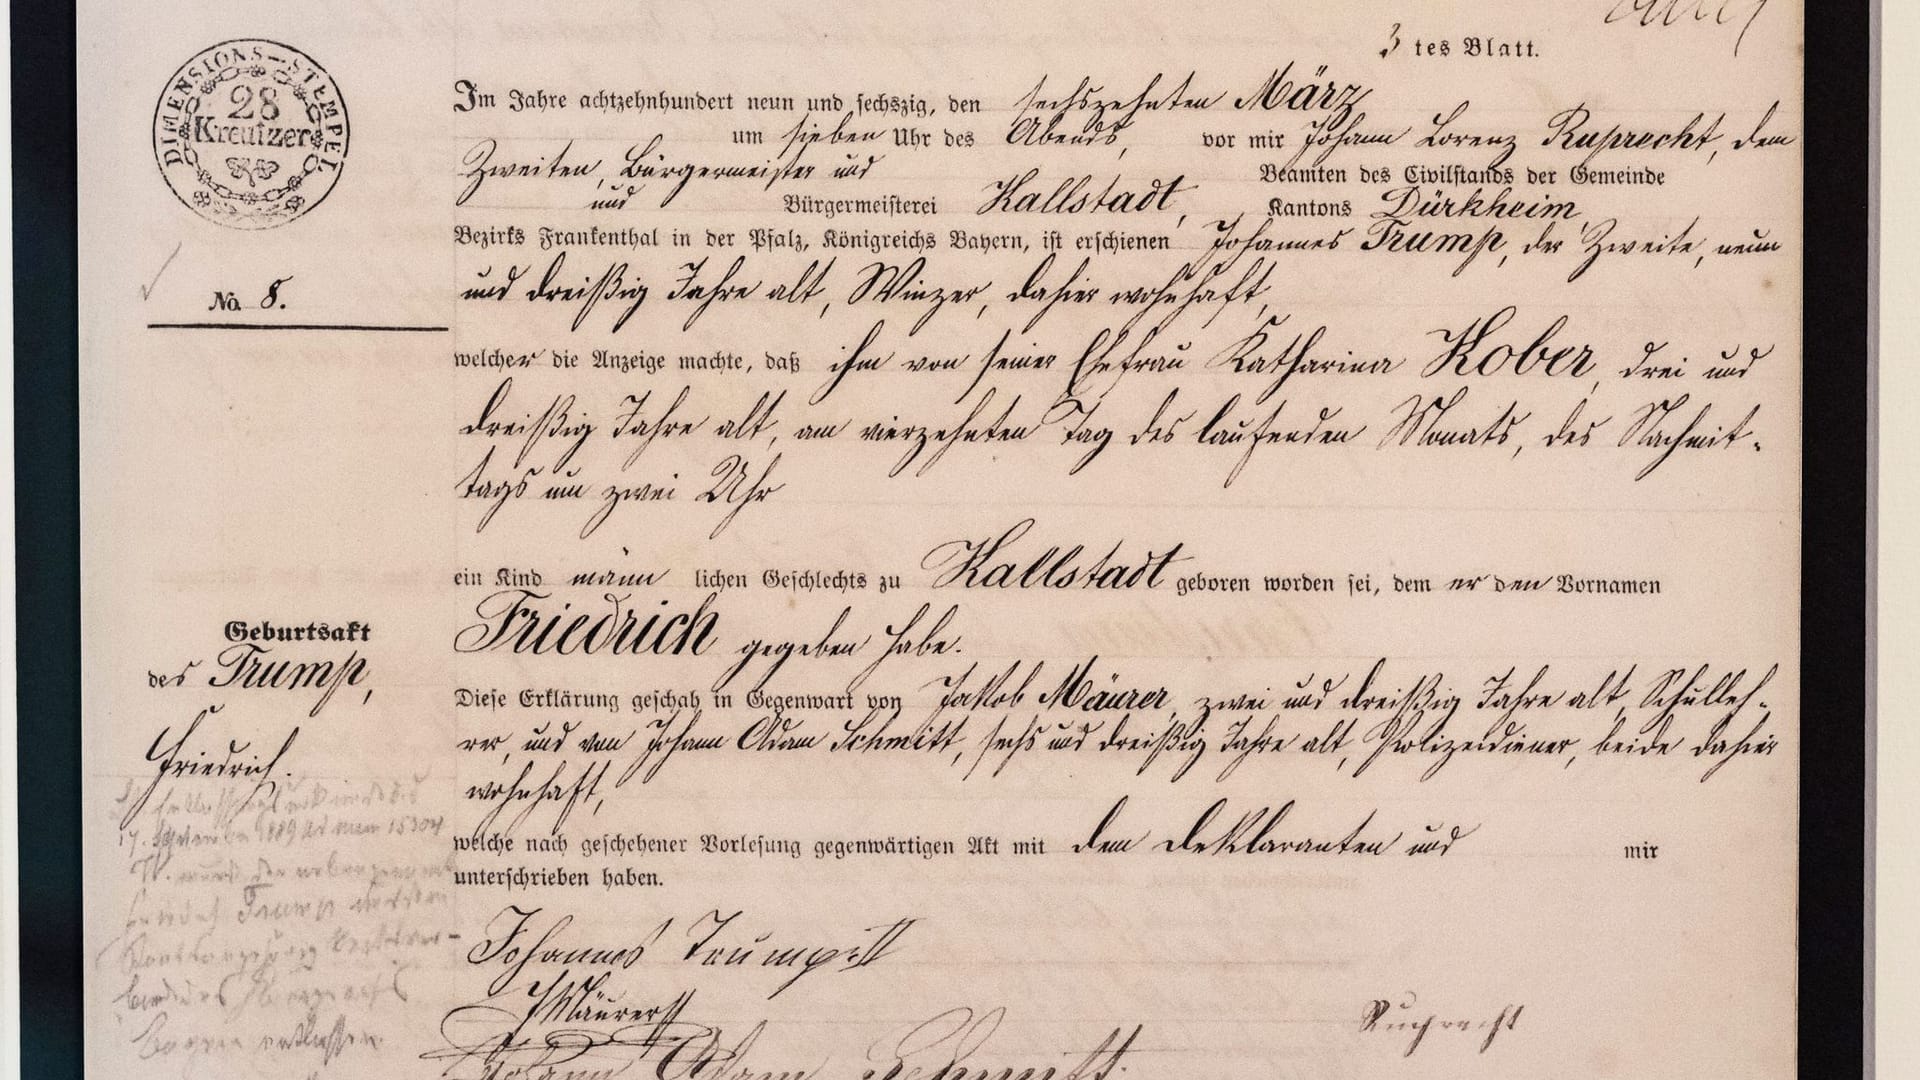 3 tes Blatt.
DIMENSIONS-STEMPEL
28
Kreutzer
Im Jahre achtzehnhundert neun und sechszig, den sechszehnten März
um sieben Uhr des Abends, vor mir Johann Lorenz Ruprecht, dem
Zweiten, Bürgermeister und Beamten des Civilstands der Gemeinde
und Bürgermeisterei Kallstadt, Kantons Dürkheim,
Bezirks Frankenthal in der Pfalz, Königreichs Bayern, ist erschienen Johannes Trump, der Zweite, neun
und dreißig Jahre alt, Winzer, dahier wohnhaft,
No. 8.
welcher die Anzeige machte, daß ihm von seiner Ehefrau Katharina Kober, drei und
dreißig Jahre alt, am vierzehnten Tag des laufenden Monats, des Nachmit-
tags um zwei Uhr
ein Kind männlichen Geschlechts zu Kallstadt geboren worden sei, dem er den Vornamen
Friedrich gegeben habe.
Geburtsakt
des Trump,
Friedrich.
Diese Erklärung geschah in Gegenwart von Jakob Mäurer, zwei und dreißig Jahre alt, Schulleh-
rer, und von Johann Adam Schmitt, sechs und dreißig Jahre alt, Polizeidiener, beide dahier
wohnhaft,
welche nach geschehener Vorlesung gegenwärtigen Akt mit dem Deklaranten und mir
unterschrieben haben.
Johannes Trump II
J Mäurer
Ruprecht
Johann Adam Schmitt.
17. 1889 15304
Trump
Bayern entlassen